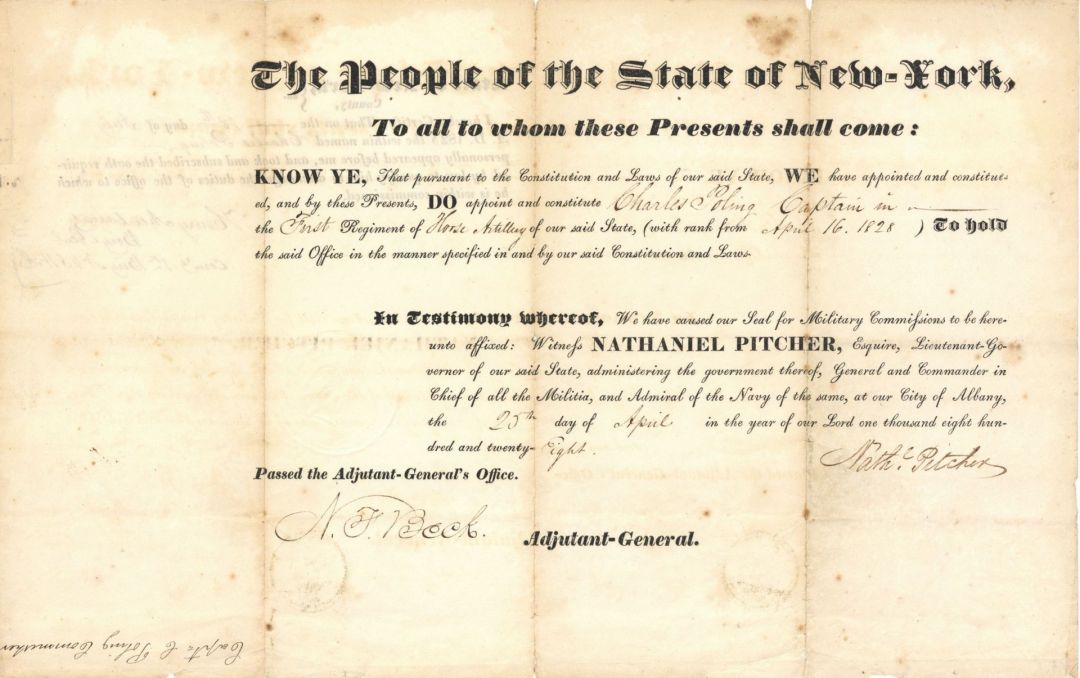 The People of the State of New-York,
To all to whom these Presents shall come:
KNOW YE, That pursuant to the Constitution and Laws of our said State, WE have appointed and constitut-
ed, and by these Presents, DO appoint and constitute Charles Poling Captain in
the First Regiment of Horse Artillery of our said State, (with rank from April 16. 1828 ) To hold
the said Office in the manner specified in and by our said Constitution and Laws.
In Testimony whereof, We have caused our Seal for Military Commissions to be here-
unto affixed: Witness NATHANIEL PITCHER, Esquire, Lieutenant-Go-
vernor of our said State, administering the government thereof, General and Commander in
Chief of all the Militia, and Admiral of the Navy of the same, at our City of Albany,
the 25th day of April in the year of our Lord one thousand eight hun-
dred and twenty-Eight.
Nathl. Pitcher
Passed the Adjutant-General's Office.
N. F. Beck.
Adjutant-General.
Capt. C Poling